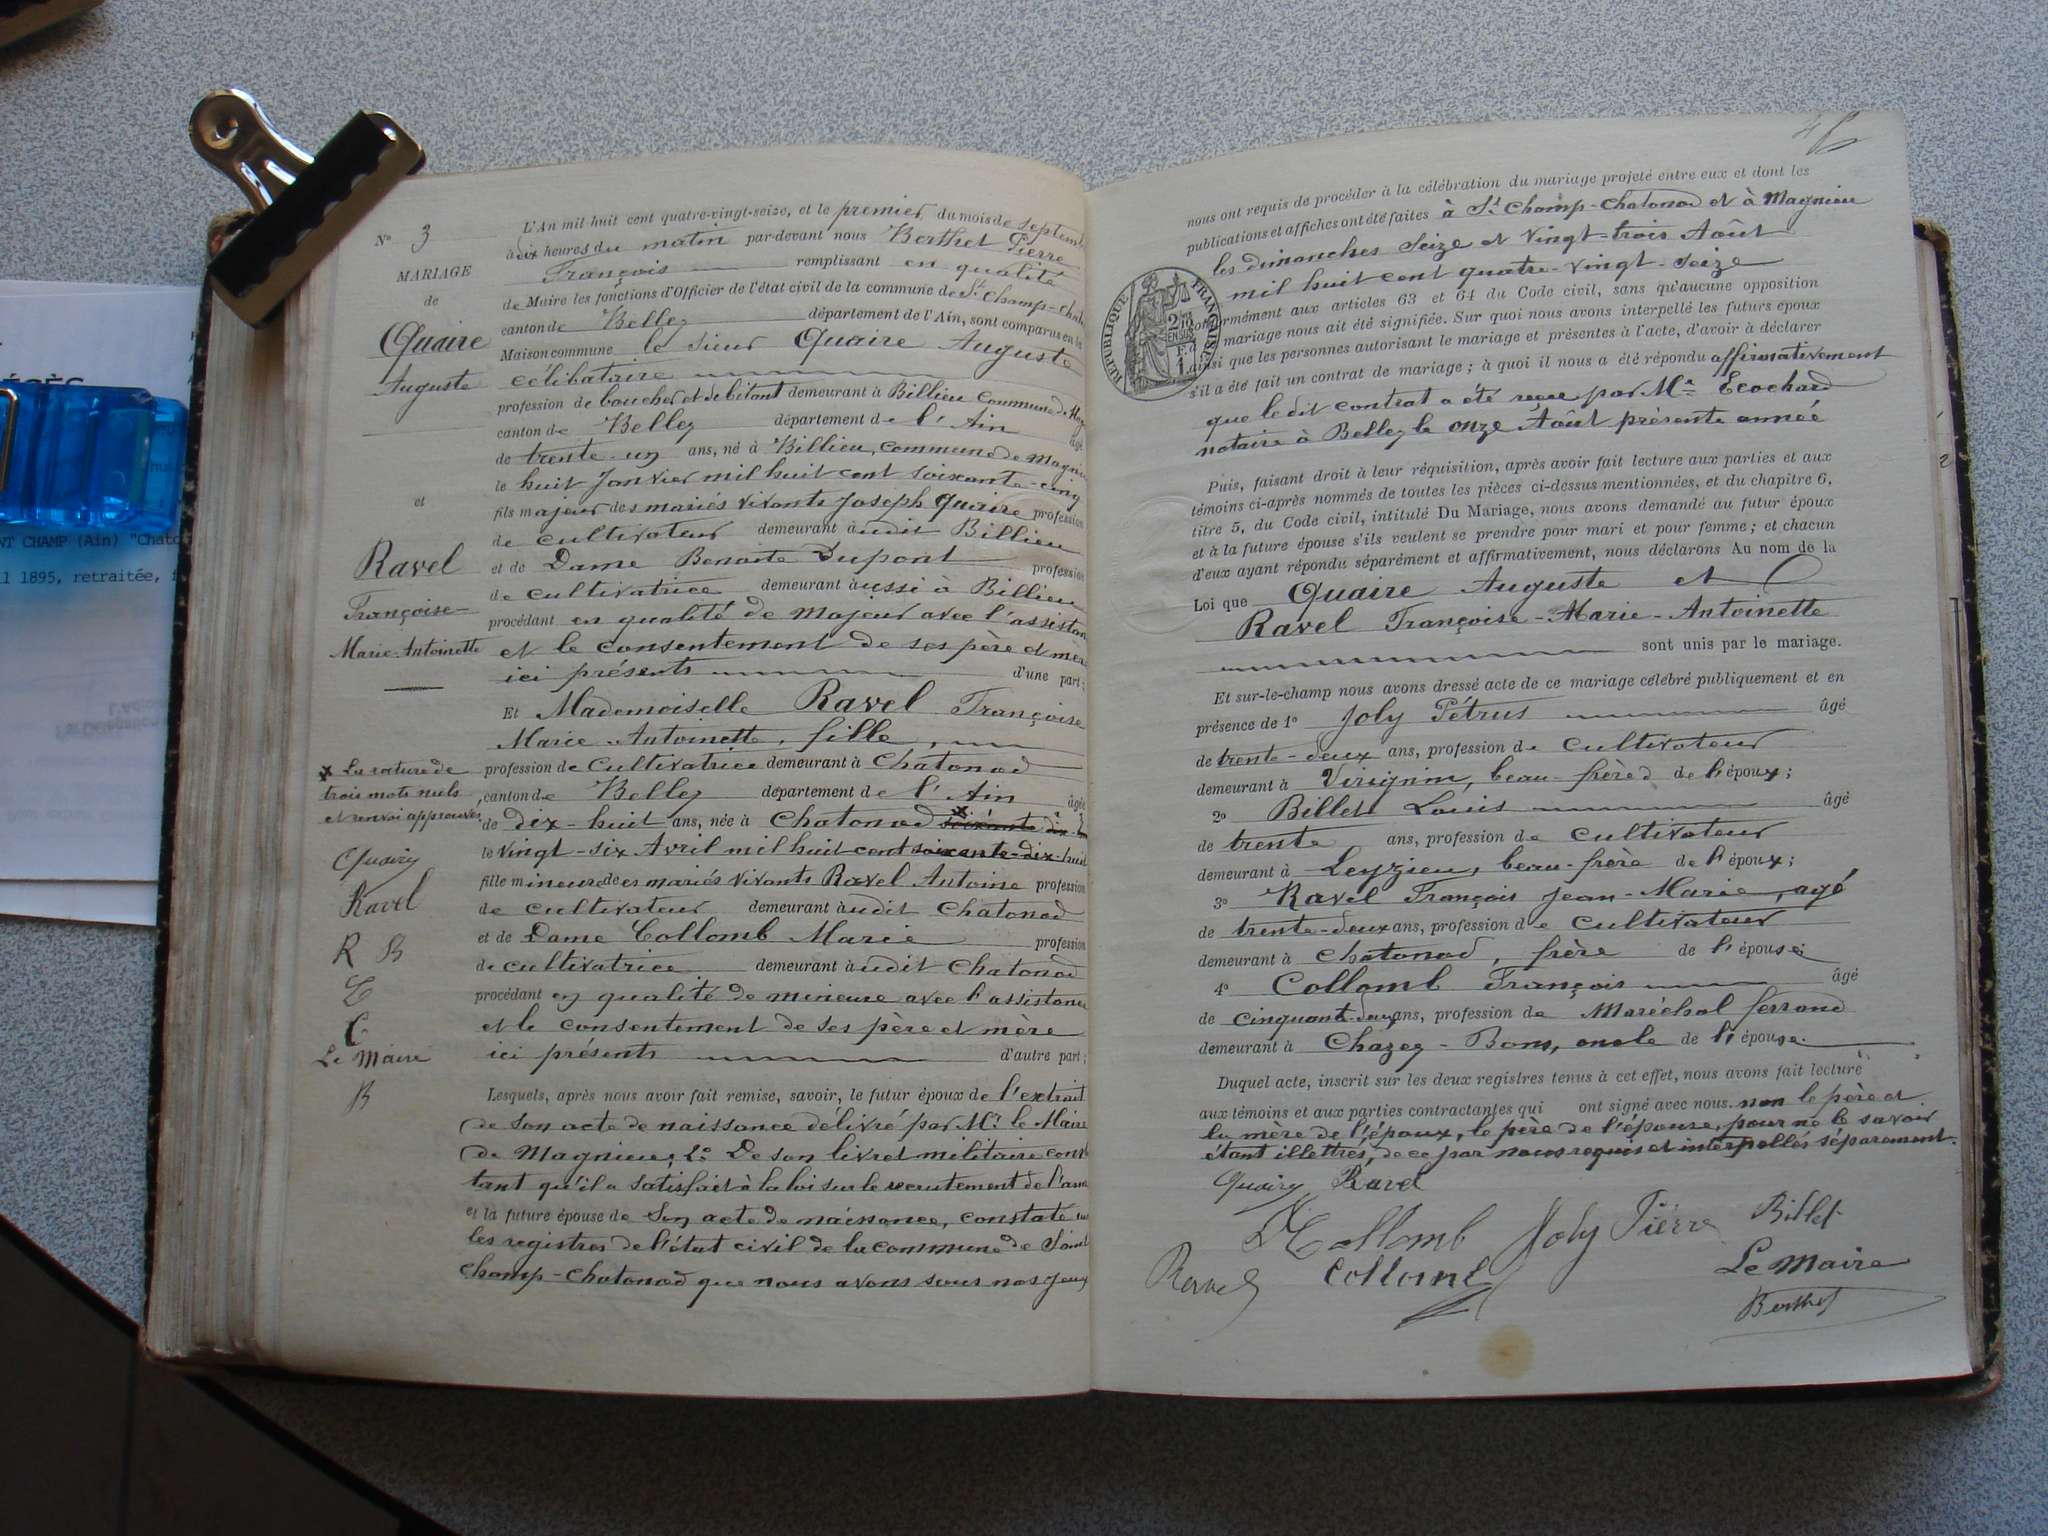 N° 3
MARIAGE
de
Quaire
Auguste
et
Ravel
Françoise-
Marie-Antoinette
x La rature de
trois mots nuls
et renvoi approuvés
Quairy
Ravel
R B
C
C
Le Maire
B
L'An mil huit cent quatre-vingt-seize, et le premier du mois de septemb
à dix heures du matin par-devant nous Berthet Pierre
François remplissant en qualité
de Maire les fonctions d'Officier de l'état civil de la commune de St Champ-Chat
canton de Belley département de l'Ain, sont comparus en la
Maison commune le sieur Quaire Auguste
célibataire
profession de boucher et débitant demeurant à Billieu Commune de Mag
canton de Belley département de l'Ain âgé
de trente-un ans, né à Billieu, commune de Magnieu
le huit Janvier mil huit cent soixante-cinq
fils majeur des mariés vivants Joseph Quaire profession
de cultivateur demeurant audit Billieu
et de Dame Benoite Dupont profession
de cultivatrice demeurant aussi à Billieu
procédant en qualité de Majeur avec l'assistan
et le consentement de ses père et mère
ici présents d'une part;
Et Mademoiselle Ravel Françoise
Marie-Antoinette, fille,
profession de Cultivatrice demeurant à Chatonod
canton de Belley département de l'Ain âgée
de dix-huit ans, née à Chatonod x soixante dix-
le vingt-six Avril mil huit cent soixante-dix-huit
fille mineure des mariés vivants Ravel Antoine profession
de cultivateur demeurant audit Chatonod
et de Dame Collomb Marie profession
de cultivatrice demeurant audit Chatonod
procédant en qualité de mineure avec l'assistance
et le consentement de ses père et mère
ici présents d'autre part;
Lesquels, après nous avoir fait remise, savoir, le futur époux de l'extrait
de son acte de naissance délivré par Mr le Maire
de Magnieu, 2° De son livret militaire cons
tant qu'il a satisfait à la loi sur le recrutement de l'arm
et la future épouse de Son acte de naissance, constaté
les registres de l'état civil de la commune de Saint
Champ-Chatonod que nous avons sous nos yeux
nous ont requis de procéder à la célébration du mariage projeté entre eux et dont les
publications et affiches ont été faites à St Champ-Chatonod et à Magnieu
les dimanches Seize et Vingt-trois Août
mil huit cent quatre-vingt-seize
conformément aux articles 63 et 64 du Code civil, sans qu'aucune opposition
mariage nous ait été signifiée. Sur quoi nous avons interpellé les futurs époux
ainsi que les personnes autorisant le mariage et présentes à l'acte, d'avoir à déclarer
s'il a été fait un contrat de mariage; à quoi il nous a été répondu affirmativement
que le dit contrat a été reçu par Me Ecochard
notaire à Belley le onze Août présente année
RÉPUBLIQUE FRANÇAISE
Puis, faisant droit à leur réquisition, après avoir fait lecture aux parties et aux
témoins ci-après nommés de toutes les pièces ci-dessus mentionnées, et du chapitre 6,
titre 5, du Code civil, intitulé Du Mariage, nous avons demandé au futur époux
et à la future épouse s'ils veulent se prendre pour mari et pour femme; et chacun
d'eux ayant répondu séparément et affirmativement, nous déclarons Au nom de la
Loi que Quaire Auguste et
Ravel Françoise-Marie-Antoinette
sont unis par le mariage.
Et sur-le-champ nous avons dressé acte de ce mariage célébré publiquement et en
présence de 1° Joly Pétrus âgé
de trente-deux ans, profession de cultivateur
demeurant à Virignin, beau-frère de l'époux;
2° Billet Louis âgé
de trente ans, profession de cultivateur
demeurant à Leyzieu, beau-frère de l'époux;
3° Ravel François Jean-Marie, agé
de trente-deux ans, profession de cultivateur
demeurant à Chatonod, frère de l'épouse;
4° Collomb François âgé
de cinquante-deux ans, profession de Maréchal ferrand
demeurant à Chazey-Bons, oncle de l'épouse.
Duquel acte, inscrit sur les deux registres tenus à cet effet, nous avons fait lecture
aux témoins et aux parties contractantes qui ont signé avec nous. non le père et
la mère de l'époux, le père de l'épouse, pour ne le savoir
étant illettrés, de ce par nous requis et interpellés séparément.
Quairy Ravel
Collomb Joly Pierre Billet
Ravel Collomb Le Maire
Berthet
NT CHAMP (Ain) "Chato
1 1895, retraitée,